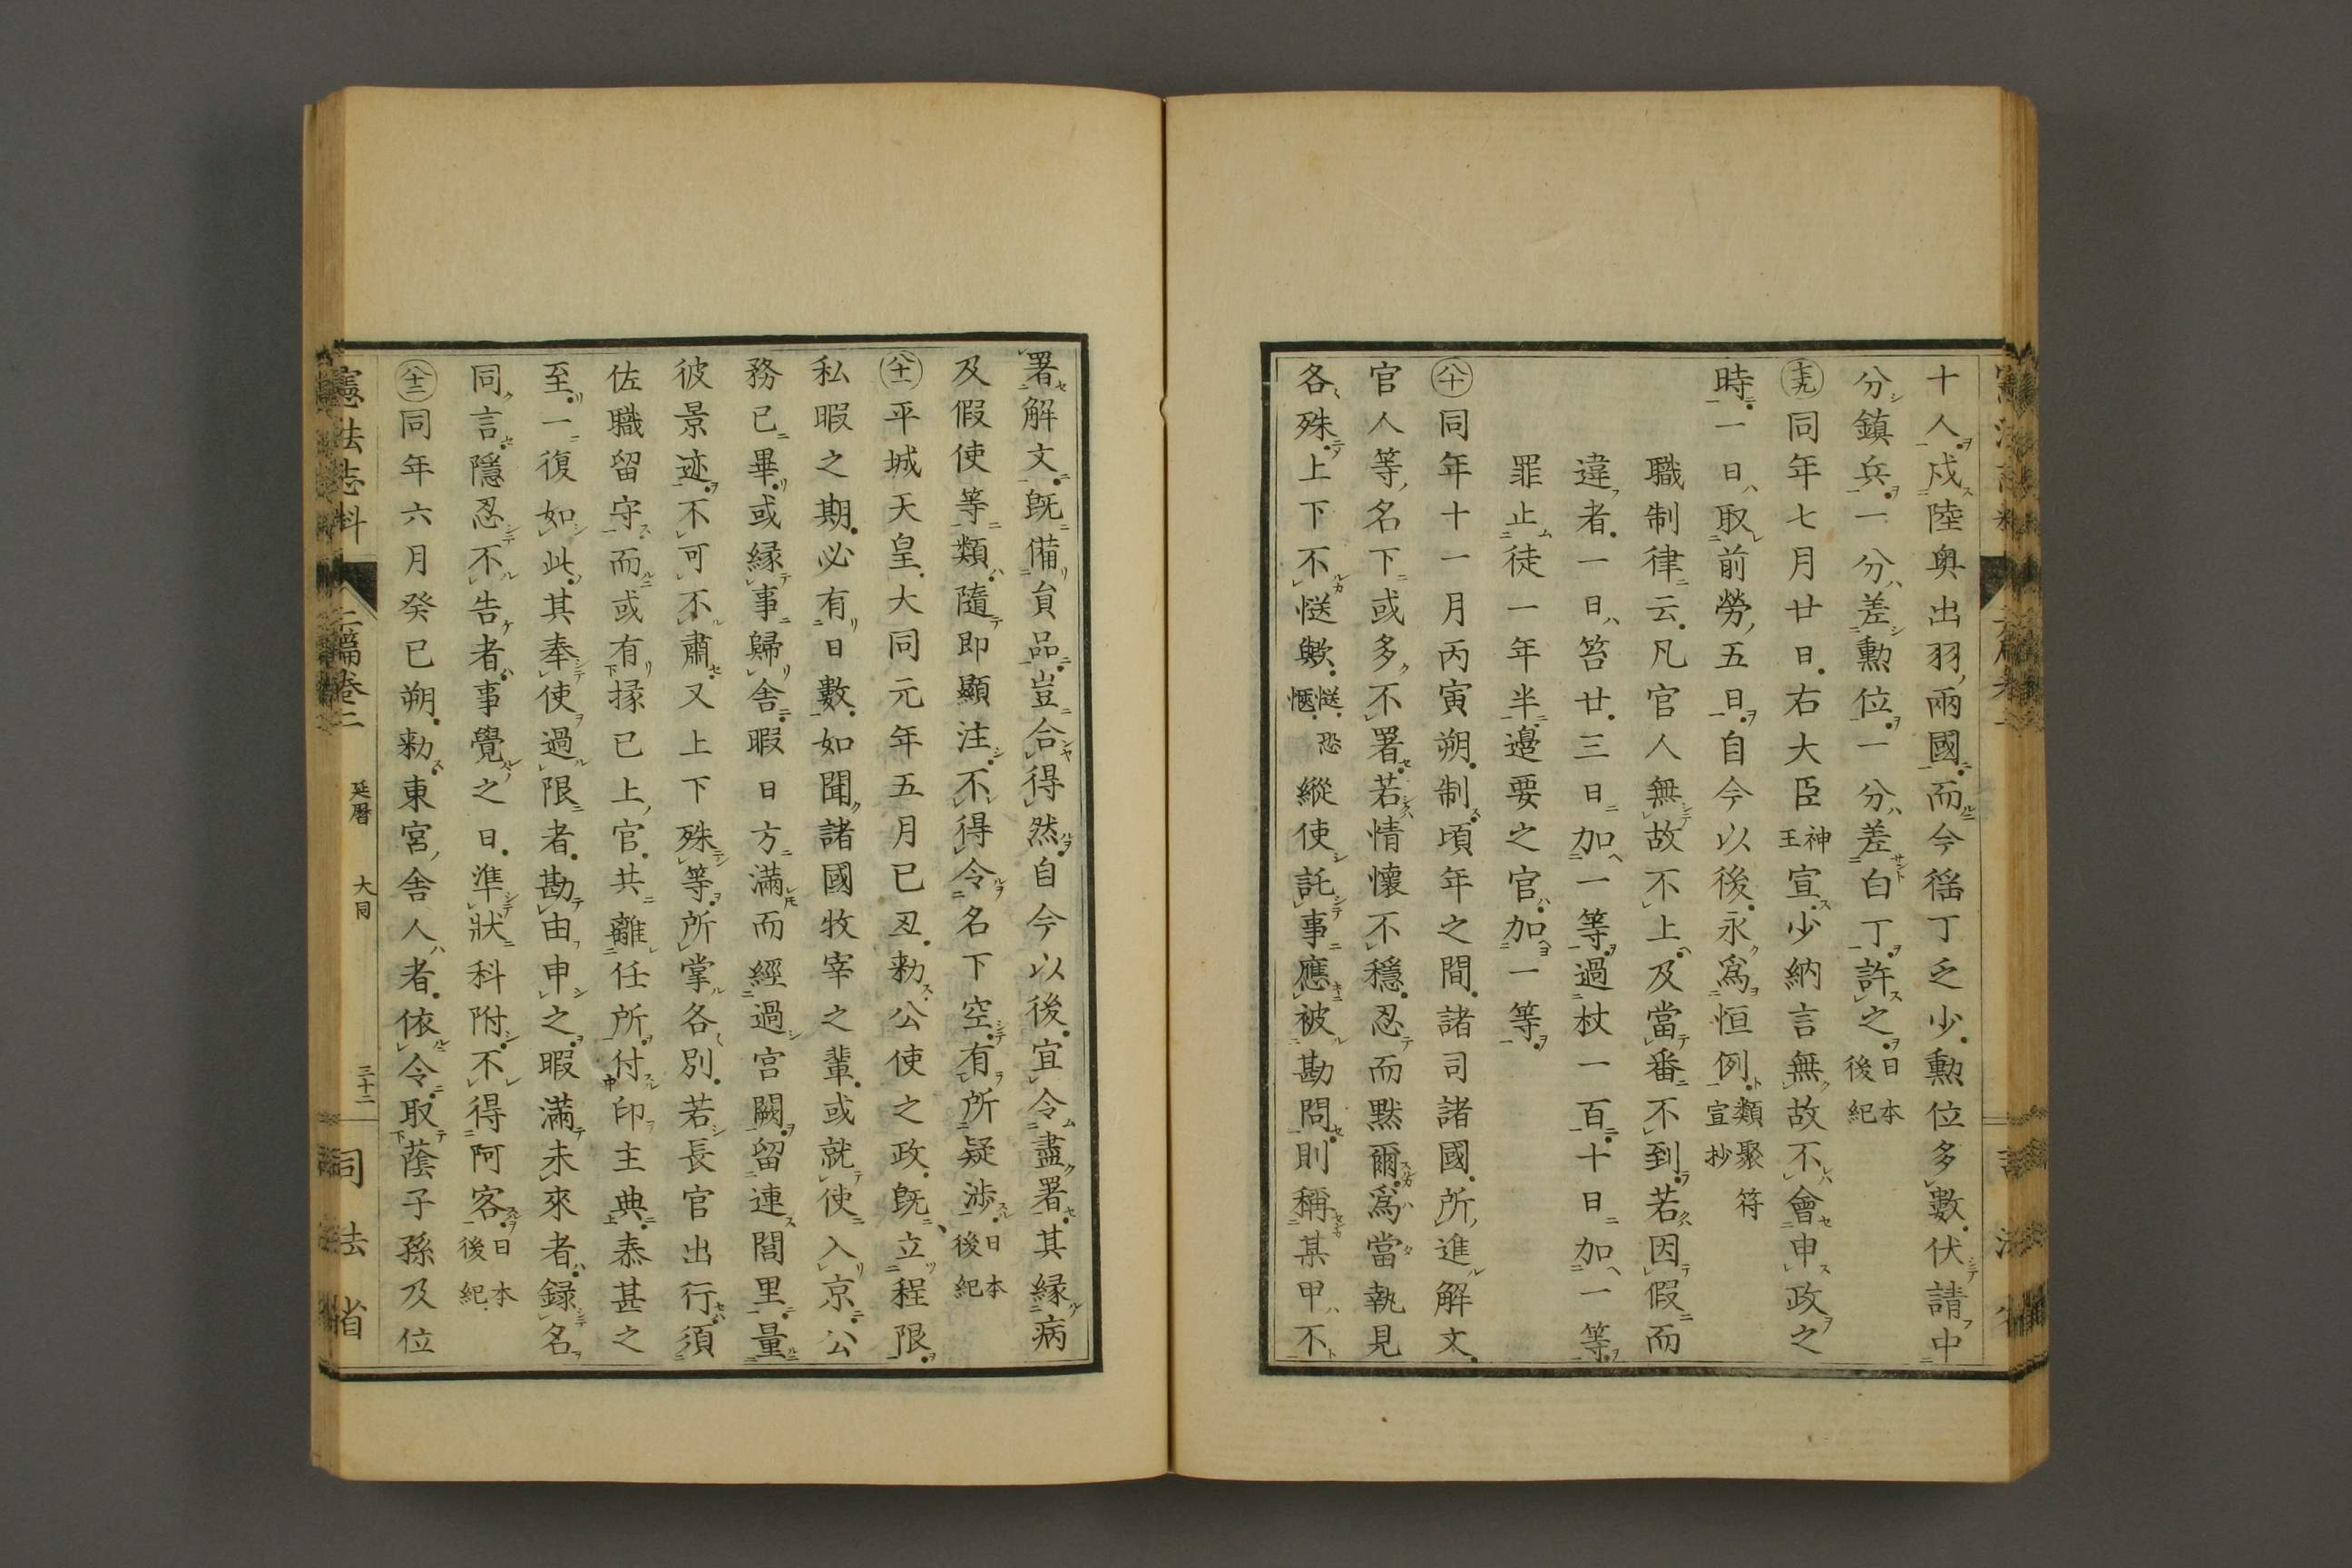 十人戍陸奥出羽兩國而今徭丁乏少勲位多數伏請中
分鎮兵一分差勲位一分差白丁許之日本後紀
七十九同年七月廿日右大臣神王宣少納言無故不會申政之
時一日取前勞五日自今以後永爲恒例類聚符宣抄
職制律云凡官人無故不上及當番不到若因假而
違者一日笞廿三日加一等過杖一百十日加一等
罪止徒一年半邉要之官加一等
八十同年十一月丙寅朔制頃年之間諸司諸國所進解文
官人等名下或多不署若情懷不穩忍而黙爾爲當執見
各殊上下不愜歟愜恐愜縱使託事應被勘問則稱某甲不
署解文旣備員品豈合得然自今以後宜令盡署其縁病
及假使等類隨即顯注不得令名下空有所疑渉日本後紀
八十一平城天皇大同元年五月己丑勅公使之政旣立程限
私暇之期必有日數如聞諸國牧宰之輩或就使入京公
務已畢或縁事歸舎暇日方滿而經過宮闕留連閭里量
彼景迹不可不肅又上下殊等所掌各別若長官出行須
佐職留守而或有掾已上官共離任所付印主典忝甚之
至一復如此其奉使過限者勘由申之暇滿未來者録名
同言隱忍不告者事覺之日準狀科附不得阿容日本後紀
八十二同年六月癸巳朔勅東宮舎人者依令取蔭子孫及位
憲法志料 二篇卷二 延暦 大同 三十二 司法省